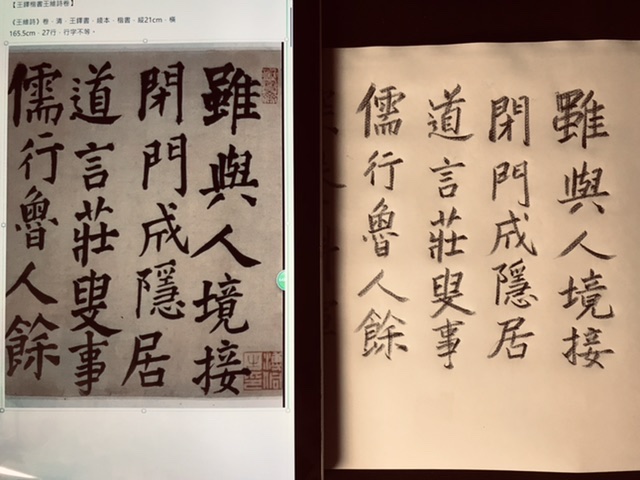 【王鐸楷書王維詩卷】
《王維詩》卷，清，王鐸書，綾本，楷書，縱21cm，橫
165.5cm，27行，行字不等。
雖與人境接
閉門成隱居
道言莊叟事
儒行魯人餘
雖與人境接
閉門成隱居
道言莊叟事
儒行魯人餘